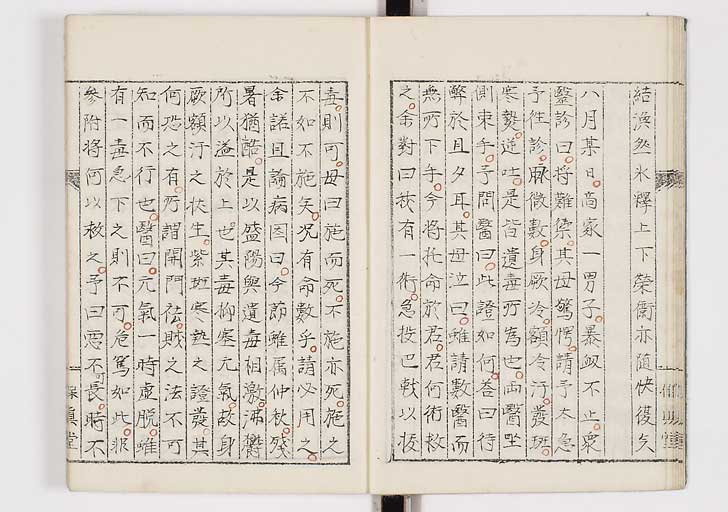 結渙然氷釋上下榮衛亦隨快復矣
八月某日。高家一男子。暴衂不止。衆
毉診曰。將難藥。其母驚愕。請予太急。
予徃診。脉微數。身厥冷。額冷汗。發斑。
寒熱。逆吐。是皆遺毒所爲也。両醫坐
側束手。予問醫曰。此證如何。荅曰待
斃於且夕耳。其母泣曰。雖請數醫而
無所下手。今將托命於君。君何術救
之。余對曰。玆有一術。急投巴戟以拔
毒。則可。母曰施而死。不施亦死。施之
不如不施矣。况有命數乎。請必用之。
余諾。且論病因曰。今節雖属仲秋。殘
暑猶酷。是以盛陽與遺毒相激沸欝
所以溢於上也。其毒抑塞元氣。故身
厥額汗之生。紫斑寒熱之證發。其
何恐之有。所謂開門佉賊之法。不可
知而不行也。醫曰。元氣一時虚脱。雖
有一毒急下之則不可。危篤如此。非
參附将何以救之。予曰。惡不可長。時不
保眞堂